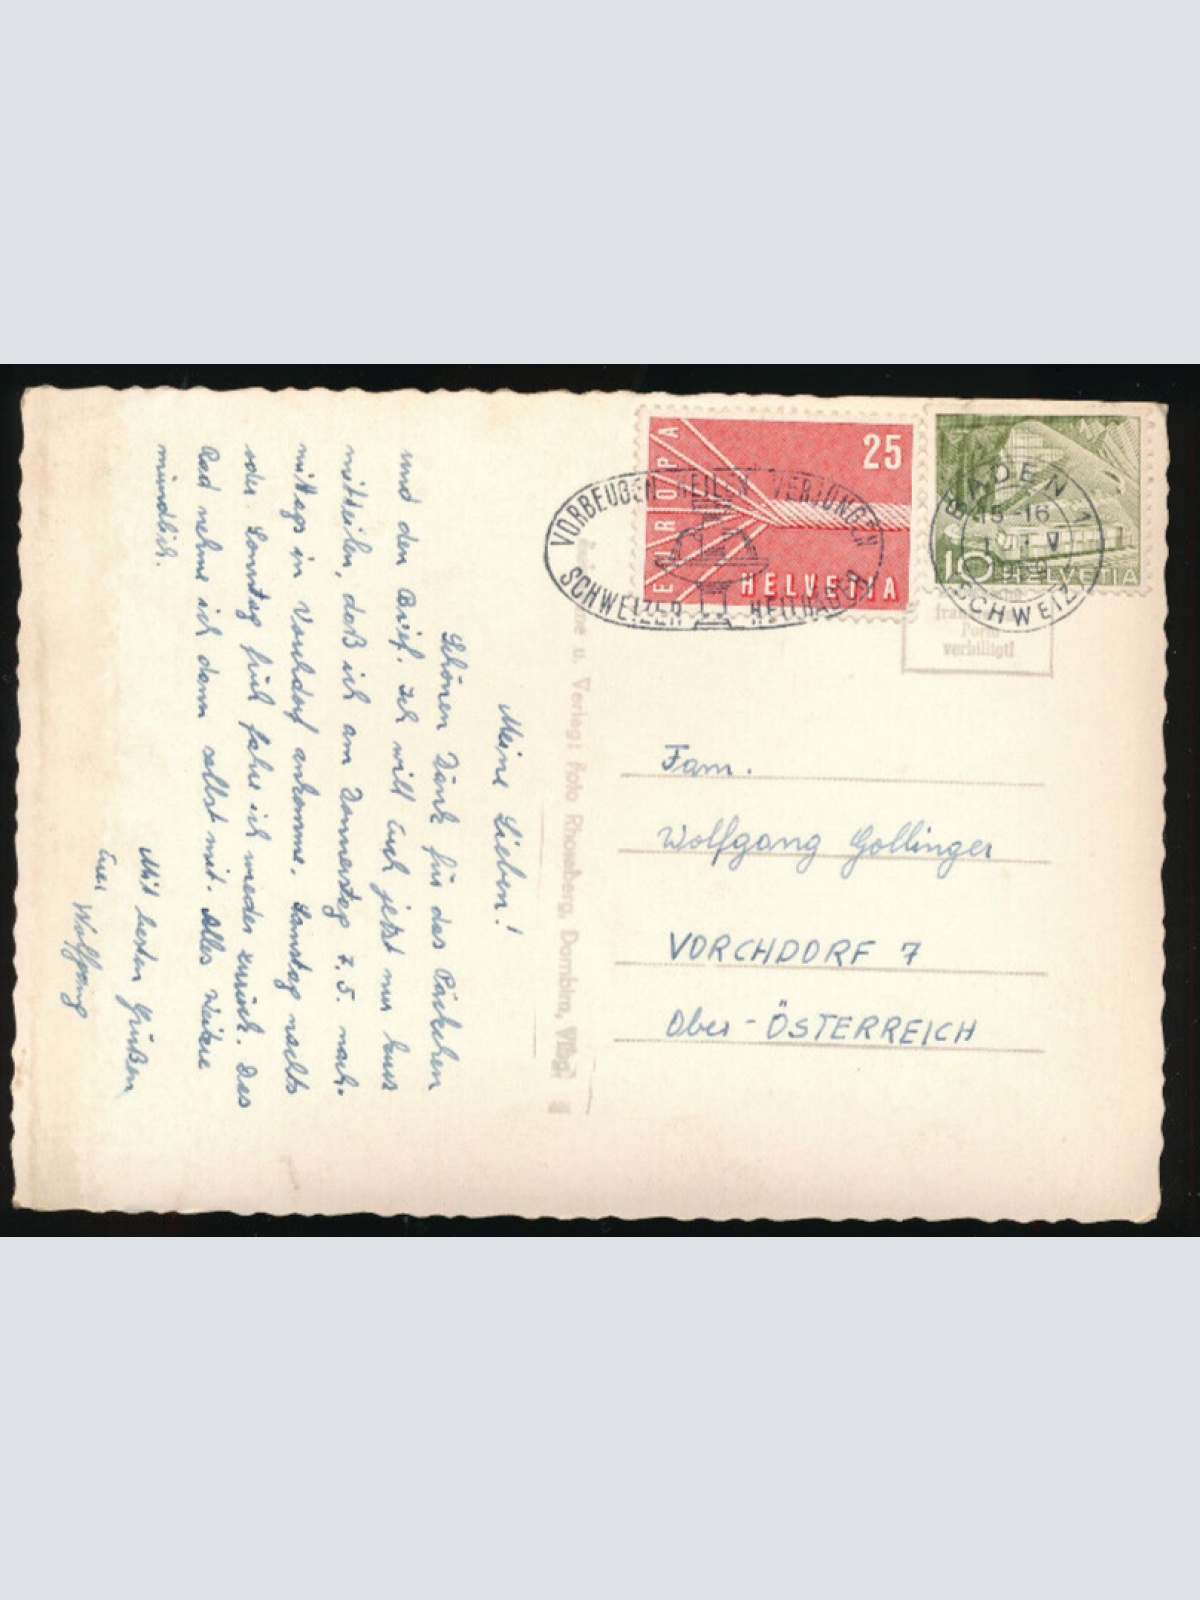 Meine Lieben!
Schönen Dank für das Päckchen
und den Brief. Ich will Euch jetzt nur kurz
mitteilen, daß ich am Donnerstag 7.5. nach-
mittags in Vorchdorf ankomme. Samstag nachts
oder Sonntag früh fahre ich wieder zurück. Das
Rad nehme ich dann selbst mit. Alles Weitere
mündlich.
Mit besten Grüßen
Euer Wolfgang
u. Verlag: Foto Rhomberg, Dornbirn, Vlbg.
EUROPA
25
HELVETIA
VORBEUGEN HEILEN VERJÜNGEN
SCHWEIZER HEILBÄDER
10 HELVETIA
BADEN 1
15-16
V
SCHWEIZ
Porto
verbilligt!
Fam.
Wolfgang Gollinger
VORCHDORF 7
Ober-ÖSTERREICH